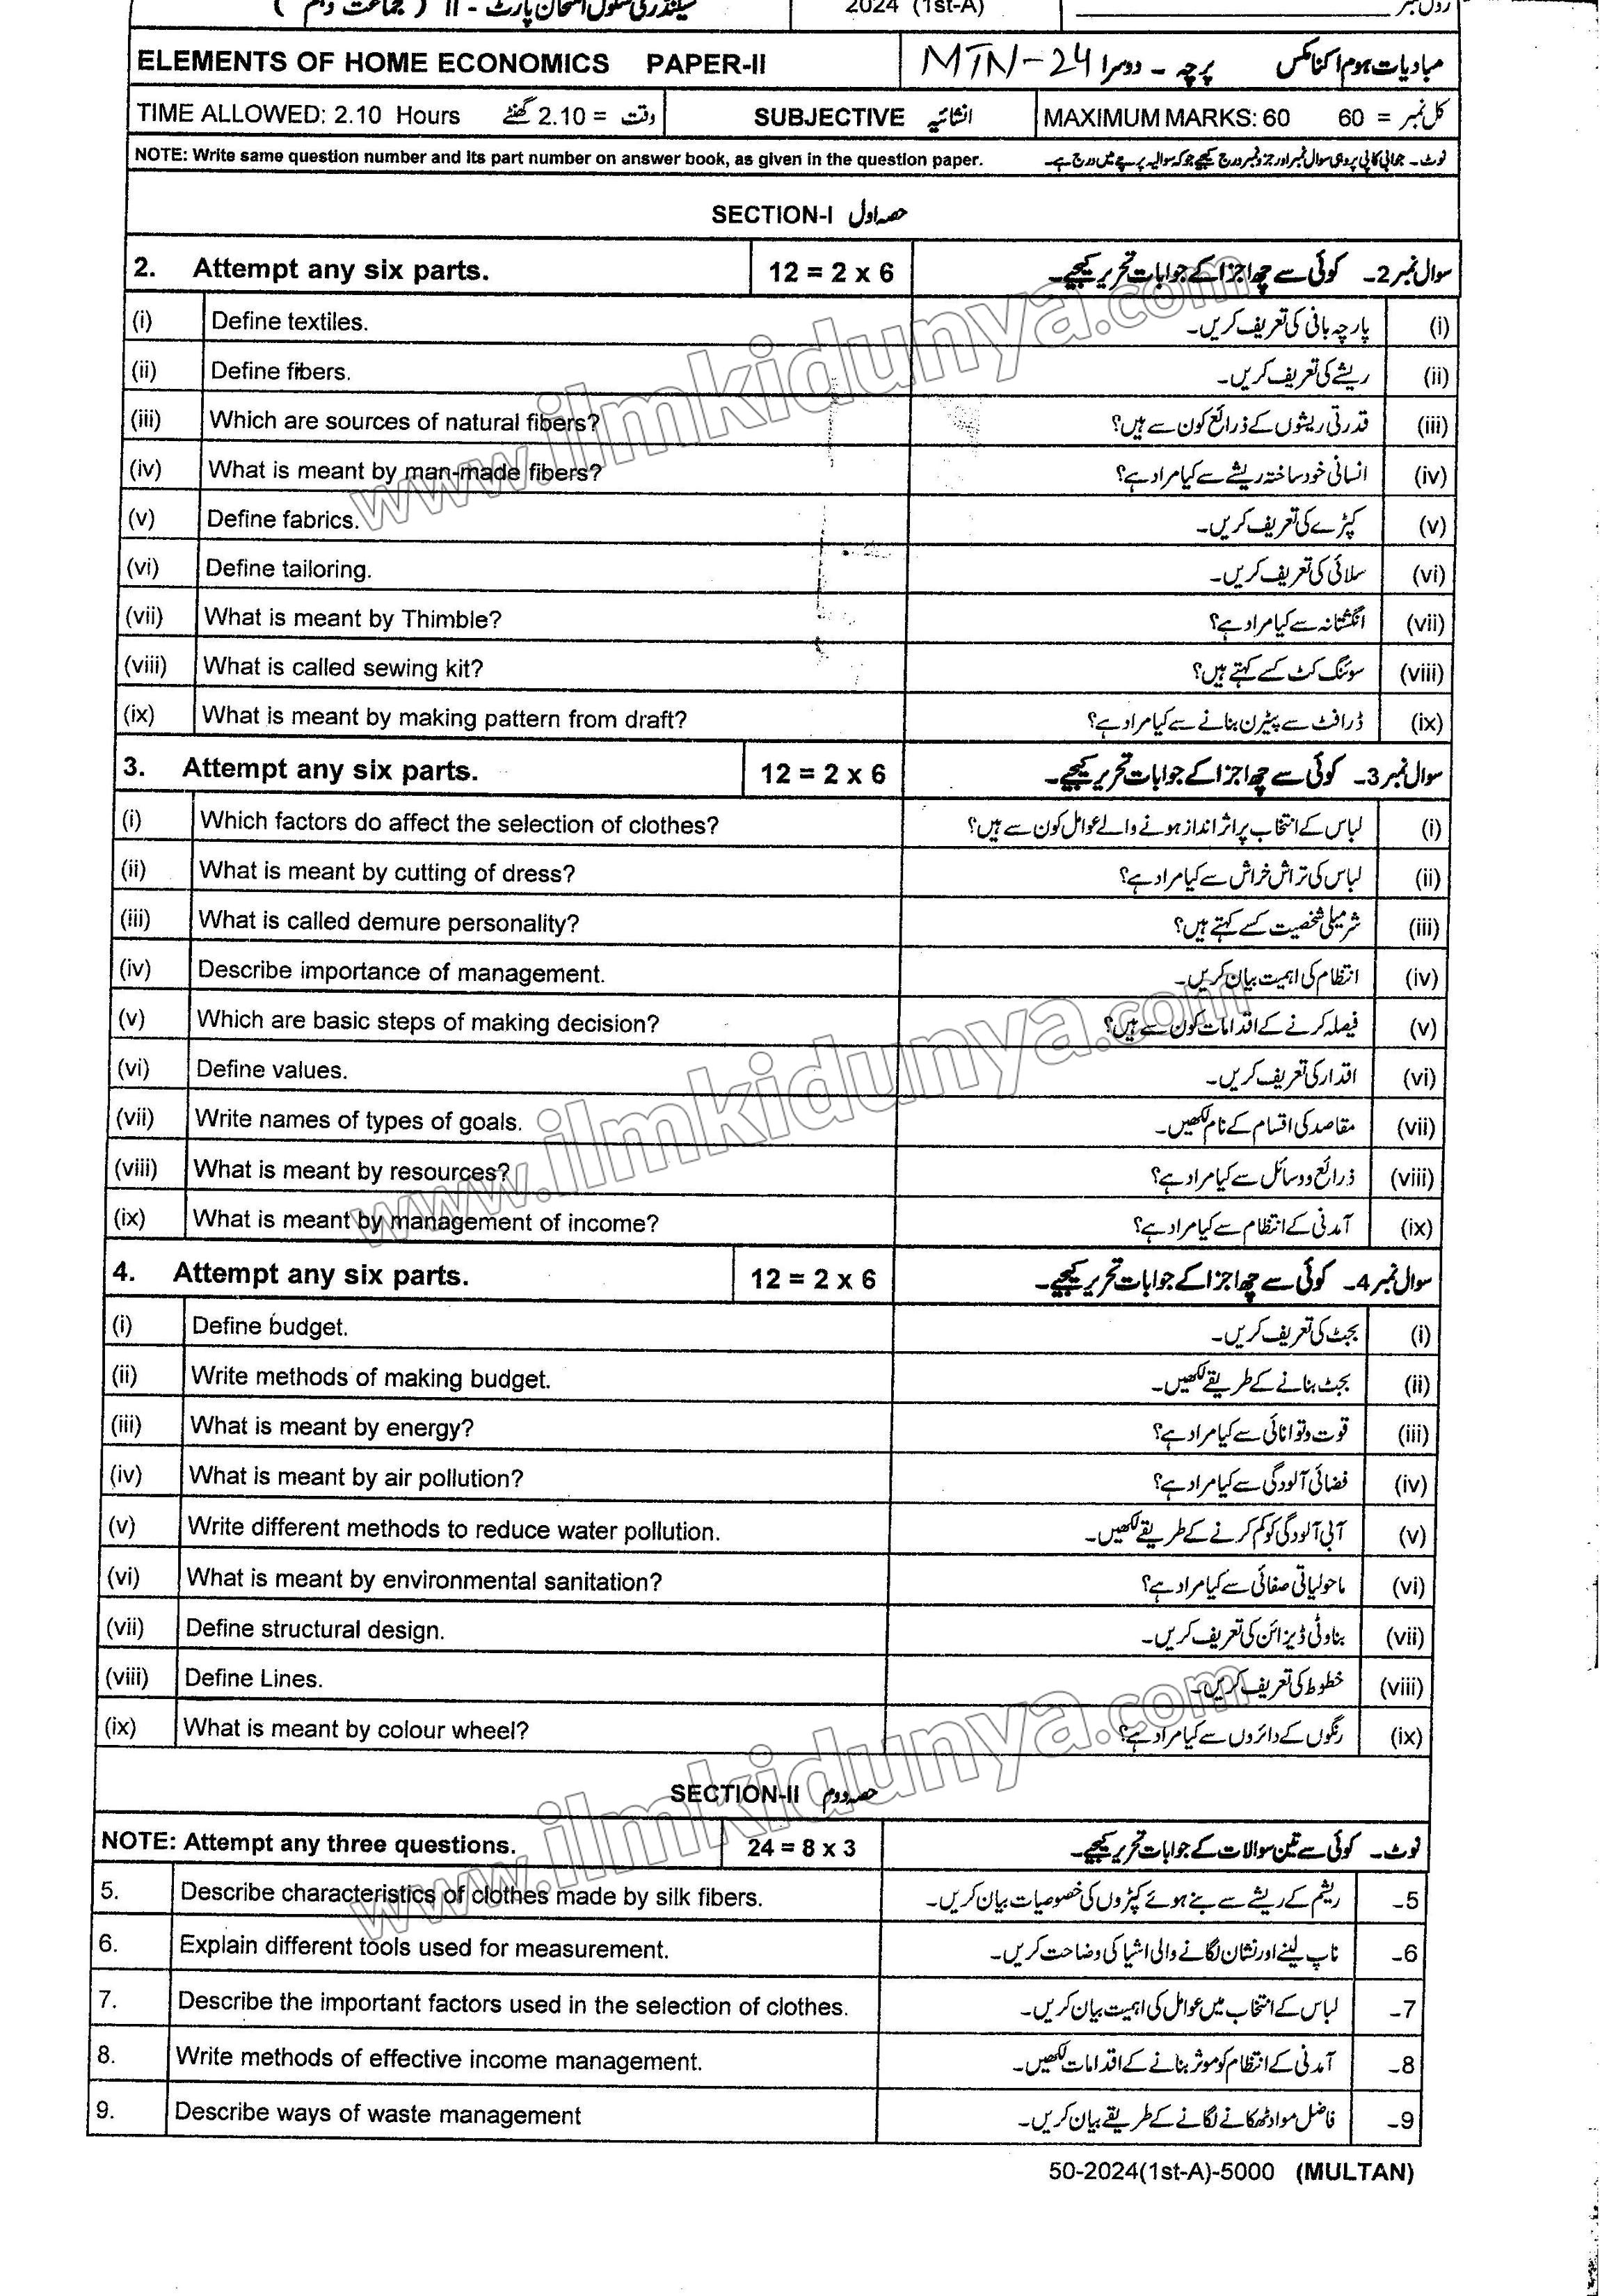 سیکنڈری سکول امتحان پارٹ - II ( جماعت دہم ) 2024 (1st-A) رول نمبر
ELEMENTS OF HOME ECONOMICS PAPER-II MTN-24 پرچہ - دوسرا مبادیات ہوم اکنامکس
TIME ALLOWED: 2.10 Hours وقت = 2.10 گھنٹے SUBJECTIVE انشائیہ MAXIMUM MARKS: 60 کل نمبر = 60
NOTE: Write same question number and its part number on answer book, as given in the question paper. نوٹ۔ جوابی کاپی پر وہی سوال نمبر اور جزو نمبر درج کیجیے جو کہ سوالیہ پرچے میں درج ہے۔
SECTION-I حصہ اول
2. Attempt any six parts. 12 = 2 x 6 سوال نمبر 2۔ کوئی سے چھ اجزا کے جوابات تحریر کیجیے۔
(i) Define textiles. پارچہ بافی کی تعریف کریں۔ (i)
(ii) Define fibers. ریشے کی تعریف کریں۔ (ii)
(iii) Which are sources of natural fibers? قدرتی ریشوں کے ذرائع کون سے ہیں؟ (iii)
(iv) What is meant by man-made fibers? انسانی خود ساختہ ریشے سے کیا مراد ہے؟ (iv)
(v) Define fabrics. کپڑے کی تعریف کریں۔ (v)
(vi) Define tailoring. سلائی کی تعریف کریں۔ (vi)
(vii) What is meant by Thimble? انگشتانہ سے کیا مراد ہے؟ (vii)
(viii) What is called sewing kit? سوئنگ کٹ کسے کہتے ہیں؟ (viii)
(ix) What is meant by making pattern from draft? ڈرافٹ سے پیٹرن بنانے سے کیا مراد ہے؟ (ix)
3. Attempt any six parts. 12 = 2 x 6 سوال نمبر 3۔ کوئی سے چھ اجزا کے جوابات تحریر کیجیے۔
(i) Which factors do affect the selection of clothes? لباس کے انتخاب پر اثر انداز ہونے والے عوامل کون سے ہیں؟ (i)
(ii) What is meant by cutting of dress? لباس کی تراش خراش سے کیا مراد ہے؟ (ii)
(iii) What is called demure personality? شرمیلی شخصیت کسے کہتے ہیں؟ (iii)
(iv) Describe importance of management. انتظام کی اہمیت بیان کریں۔ (iv)
(v) Which are basic steps of making decision? فیصلہ کرنے کے اقدامات کون سے ہیں؟ (v)
(vi) Define values. اقدار کی تعریف کریں۔ (vi)
(vii) Write names of types of goals. مقاصد کی اقسام کے نام لکھیں۔ (vii)
(viii) What is meant by resources? ذرائع و وسائل سے کیا مراد ہے؟ (viii)
(ix) What is meant by management of income? آمدنی کے انتظام سے کیا مراد ہے؟ (ix)
4. Attempt any six parts. 12 = 2 x 6 سوال نمبر 4۔ کوئی سے چھ اجزا کے جوابات تحریر کیجیے۔
(i) Define budget. بجٹ کی تعریف کریں۔ (i)
(ii) Write methods of making budget. بجٹ بنانے کے طریقے لکھیں۔ (ii)
(iii) What is meant by energy? قوت و توانائی سے کیا مراد ہے؟ (iii)
(iv) What is meant by air pollution? فضائی آلودگی سے کیا مراد ہے؟ (iv)
(v) Write different methods to reduce water pollution. آبی آلودگی کو کم کرنے کے طریقے لکھیں۔ (v)
(vi) What is meant by environmental sanitation? ماحولیاتی صفائی سے کیا مراد ہے؟ (vi)
(vii) Define structural design. بناوٹی ڈیزائن کی تعریف کریں۔ (vii)
(viii) Define Lines. خطوط کی تعریف کریں۔ (viii)
(ix) What is meant by colour wheel? رنگوں کے دائروں سے کیا مراد ہے؟ (ix)
SECTION-II حصہ دوم
NOTE: Attempt any three questions. 24 = 8 x 3 نوٹ۔ کوئی سے تین سوالات کے جوابات تحریر کیجیے۔
5. Describe characteristics of clothes made by silk fibers. ریشم کے ریشے سے بنے ہوئے کپڑوں کی خصوصیات بیان کریں۔ 5۔
6. Explain different tools used for measurement. ناپ لینے اور نشان لگانے والی اشیا کی وضاحت کریں۔ 6۔
7. Describe the important factors used in the selection of clothes. لباس کے انتخاب میں عوامل کی اہمیت بیان کریں۔ 7۔
8. Write methods of effective income management. آمدنی کے انتظام کو موثر بنانے کے اقدامات لکھیں۔ 8۔
9. Describe ways of waste management فاضل مواد ٹھکانے لگانے کے طریقے بیان کریں۔ 9۔
50-2024(1st-A)-5000 (MULTAN)
www.ilmkidunya.com
www.ilmkidunya.com
www.ilmkidunya.com